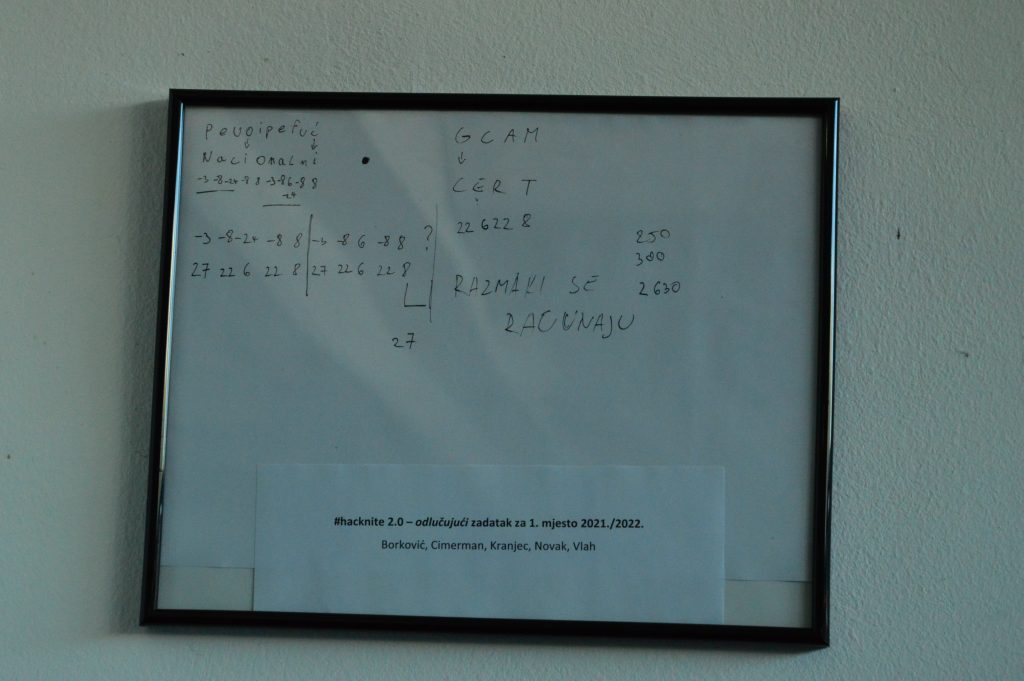 Pevoipefuć
Nacionalni
-3 -8 -24 -8 8 -3 -8 6 -8 8
-24
-3 -8 -24 -8 8 -3 -8 6 -8 8 ?
27 22 6 22 8 27 22 6 22 8
27
GCAM
CERT
22 6 22 8
RAZMAKI SE
RAČUNAJU
250
300
2630
#hacknite 2.0 – odlučujući zadatak za 1. mjesto 2021./2022.
Borković, Cimerman, Kranjec, Novak, Vlah